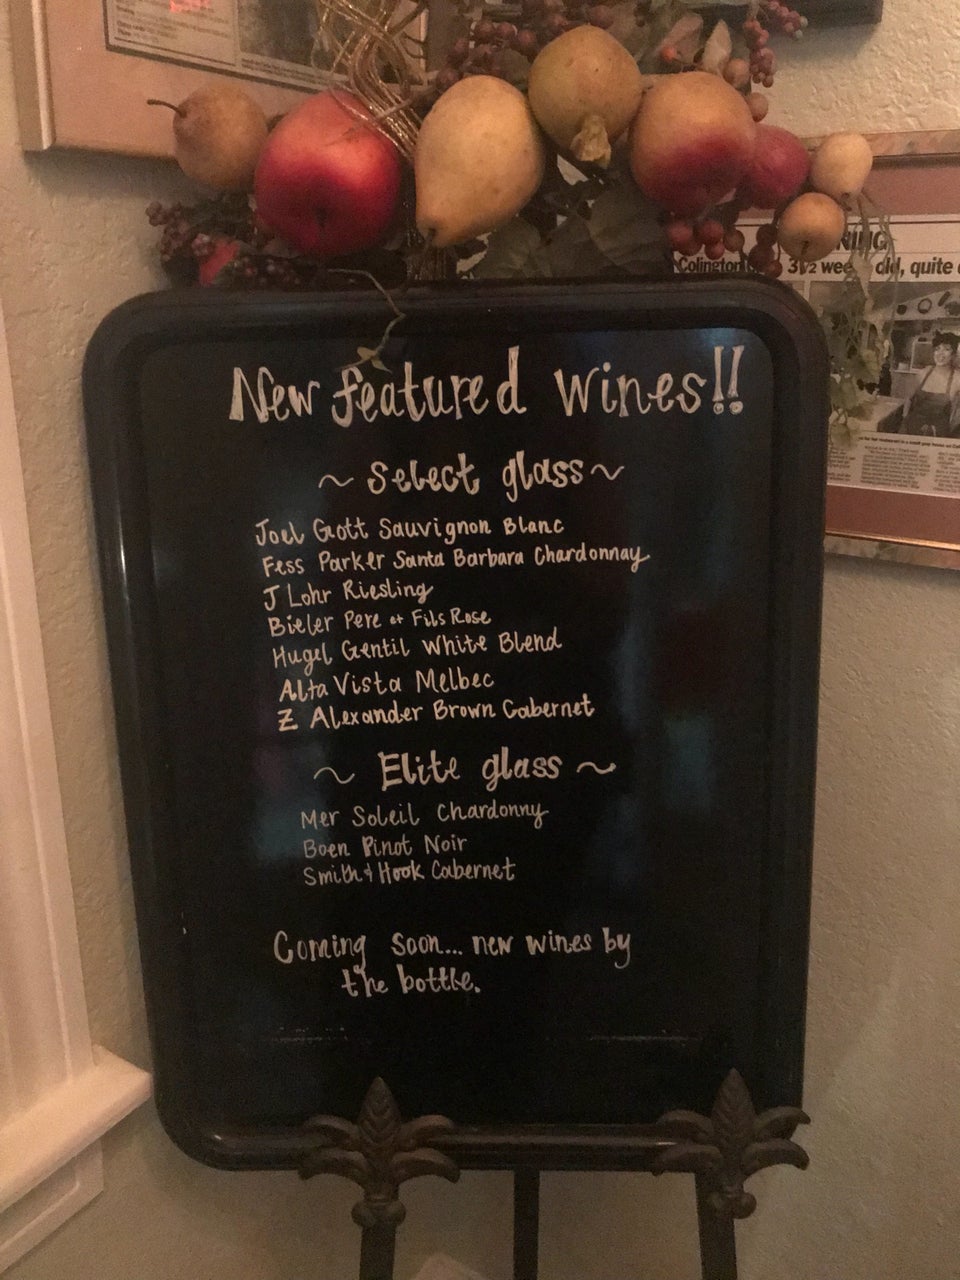 Colington
3½ wee
old, quite
New featured wines!!
~ Select glass ~
Joel Gott Sauvignon Blanc
Fess Parker Santa Barbara Chardonnay
J Lohr Riesling
Bieler Pere et Fils Rose
Hugel Gentil White Blend
Alta Vista Melbec
Z Alexander Brown Cabernet
~ Elite glass ~
Mer Soleil Chardonny
Boen Pinot Noir
Smith & Hook Cabernet
Coming soon... new wines by
the bottle.